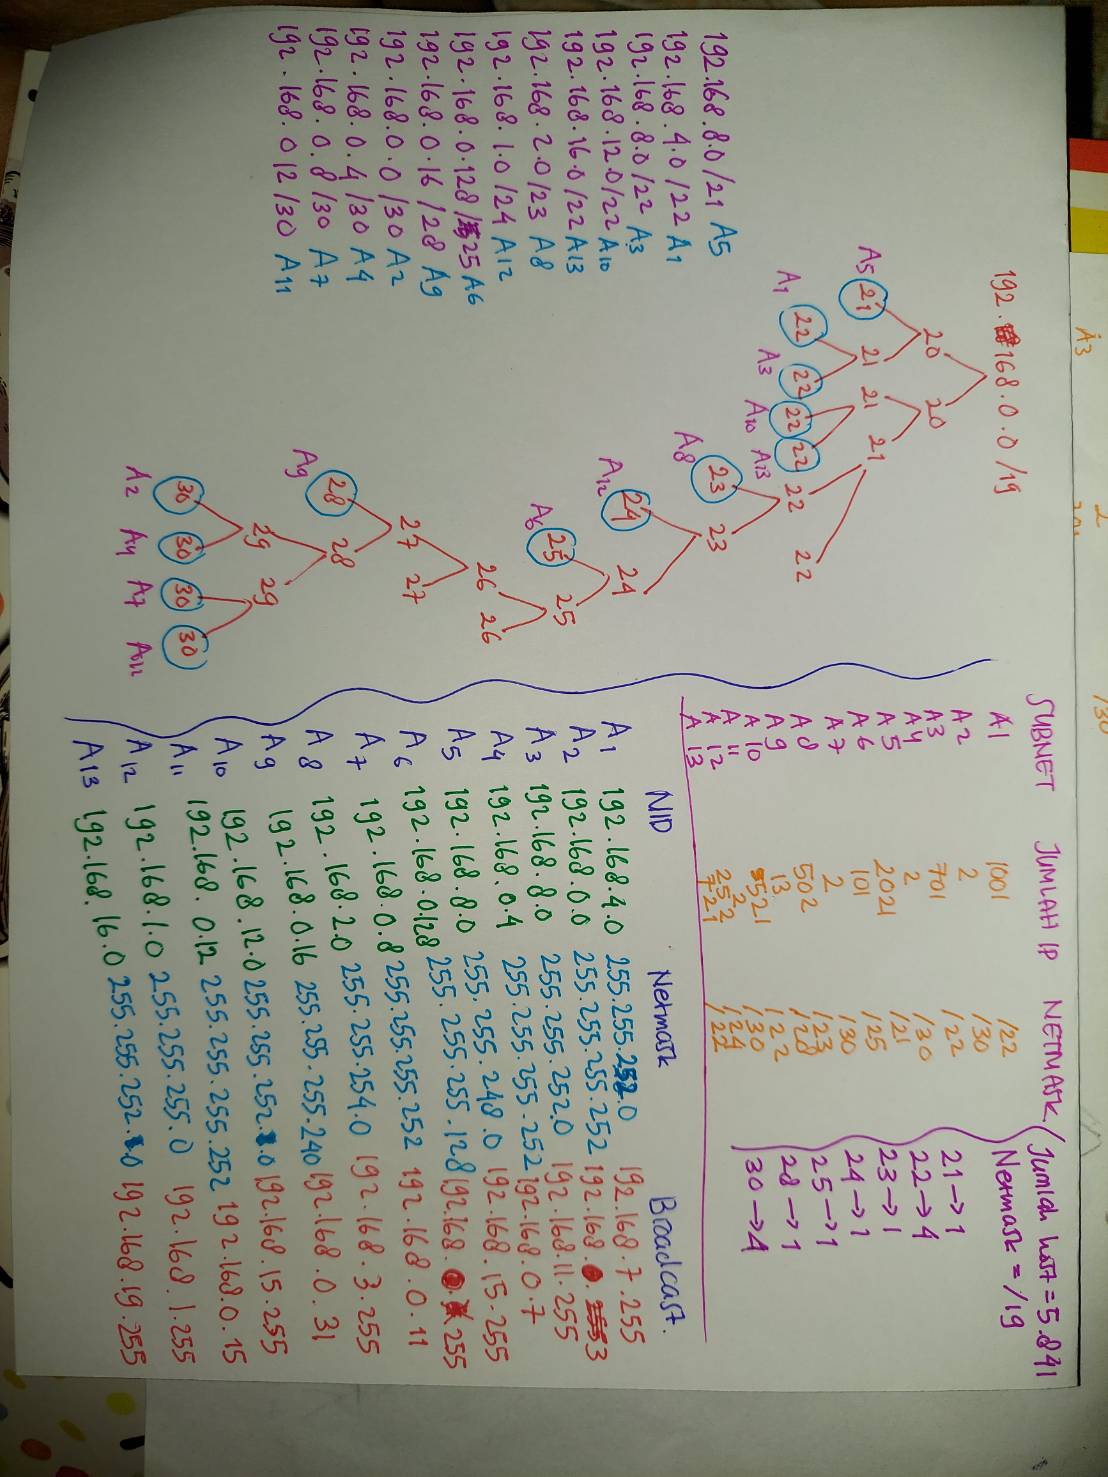 A3 2 /30
192.168.0.0 /19
20 20
A5 21 21 21 21
A1 22 22 22 22 22 22
A3 A10 A13
23 23
A8
24 24
A12
25 25
A6
26 26
27 27
28 28
A9
29 29
30 30 30 30
A2 A4 A7 A11
192.168.8.0/21 A5
192.168.4.0/22 A1
192.168.8.0/22 A3
192.168.12.0/22 A10
192.168.16.0/22 A13
192.168.2.0/23 A8
192.168.1.0/24 A12
192.168.0.128/25 A6
192.168.0.16/28 A9
192.168.0.0/30 A2
192.168.0.4/30 A4
192.168.0.8/30 A7
192.168.0 12/30 A11
SUBNET JUMLAH IP NETMASK
A1 1001 /22
A2 2 /30
A3 701 /22
A4 2 /30
A5 2021 /21
A6 101 /25
A7 2 /30
A8 502 /23
A9 13 /28
A10 521 /22
A11 2 /30
A12 252 /24
A13 721 /22
Jumlah host = 5.841
Netmask = /19
21→1
22→4
23→1
24→1
25→1
28→1
30→4
NID Netmask Broadcast.
A1 192.168.4.0 255.255.252.0 192.168.7.255
A2 192.168.0.0 255.255.255.252 192.168.0.3
A3 192.168.8.0 255.255.252.0 192.168.11.255
A4 192.168.0.4 255.255.255.252 192.168.0.7
A5 192.168.8.0 255.255.248.0 192.168.15.255
A6 192.168.0.128 255.255.255.128 192.168.0.255
A7 192.168.0.8 255.255.255.252 192.168.0.11
A8 192.168.2.0 255.255.254.0 192.168.3.255
A9 192.168.0.16 255.255.255.240 192.168.0.31
A10 192.168.12.0 255.255.252.0 192.168.15.255
A11 192.168.0.12 255.255.255.252 192.168.0.15
A12 192.168.1.0 255.255.255.0 192.168.1.255
A13 192.168.16.0 255.255.252.0 192.168.19.255